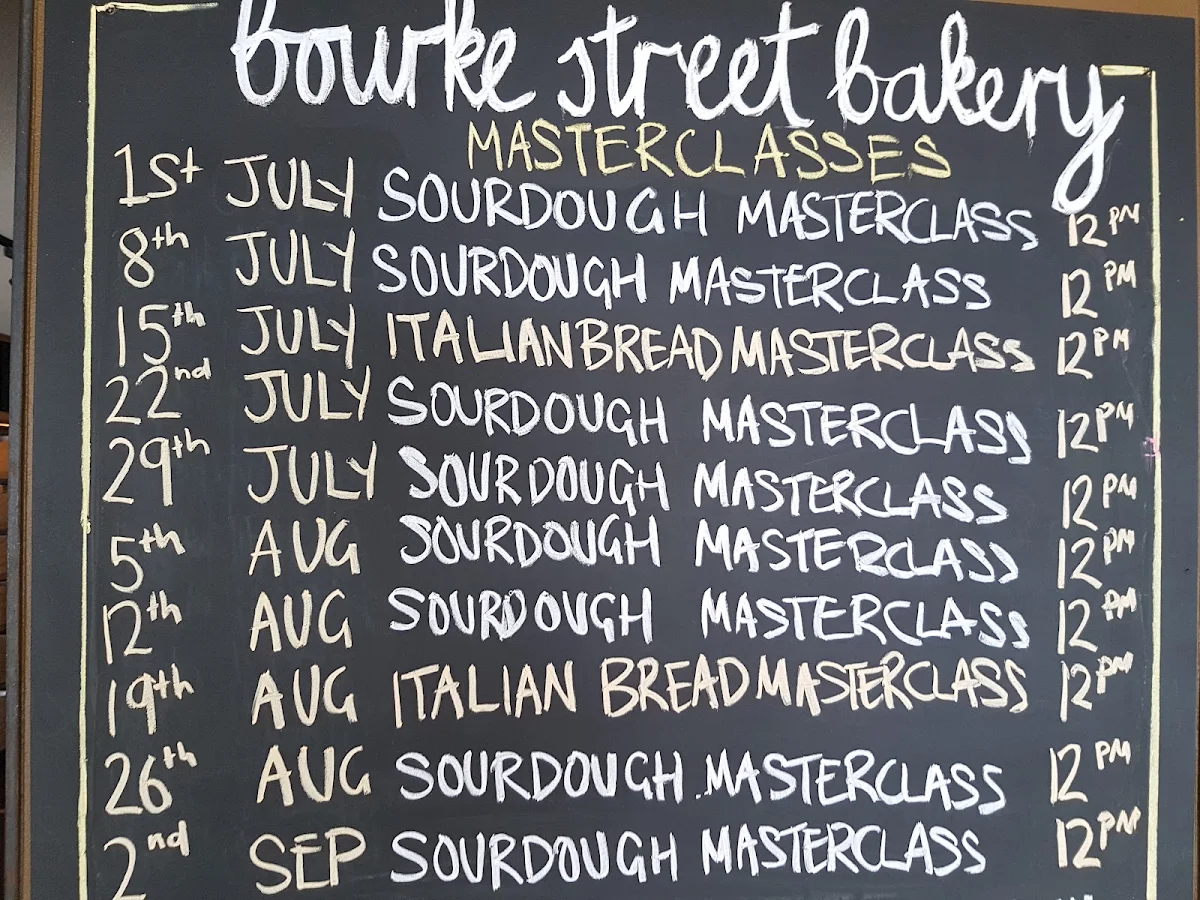 bourke street bakery
MASTERCLASSES
1st JULY SOURDOUGH MASTERCLASS 12 PM
8th JULY SOURDOUGH MASTERCLASS 12 PM
15th JULY ITALIAN BREAD MASTERCLASS 12 PM
22nd JULY SOURDOUGH MASTERCLASS 12 PM
29th JULY SOURDOUGH MASTERCLASS 12 PM
5th AUG SOURDOUGH MASTERCLASS 12 PM
12th AUG SOURDOUGH MASTERCLASS 12 PM
19th AUG ITALIAN BREAD MASTERCLASS 12 PM
26th AUG SOURDOUGH MASTERCLASS 12 PM
2nd SEP SOURDOUGH MASTERCLASS 12 PM